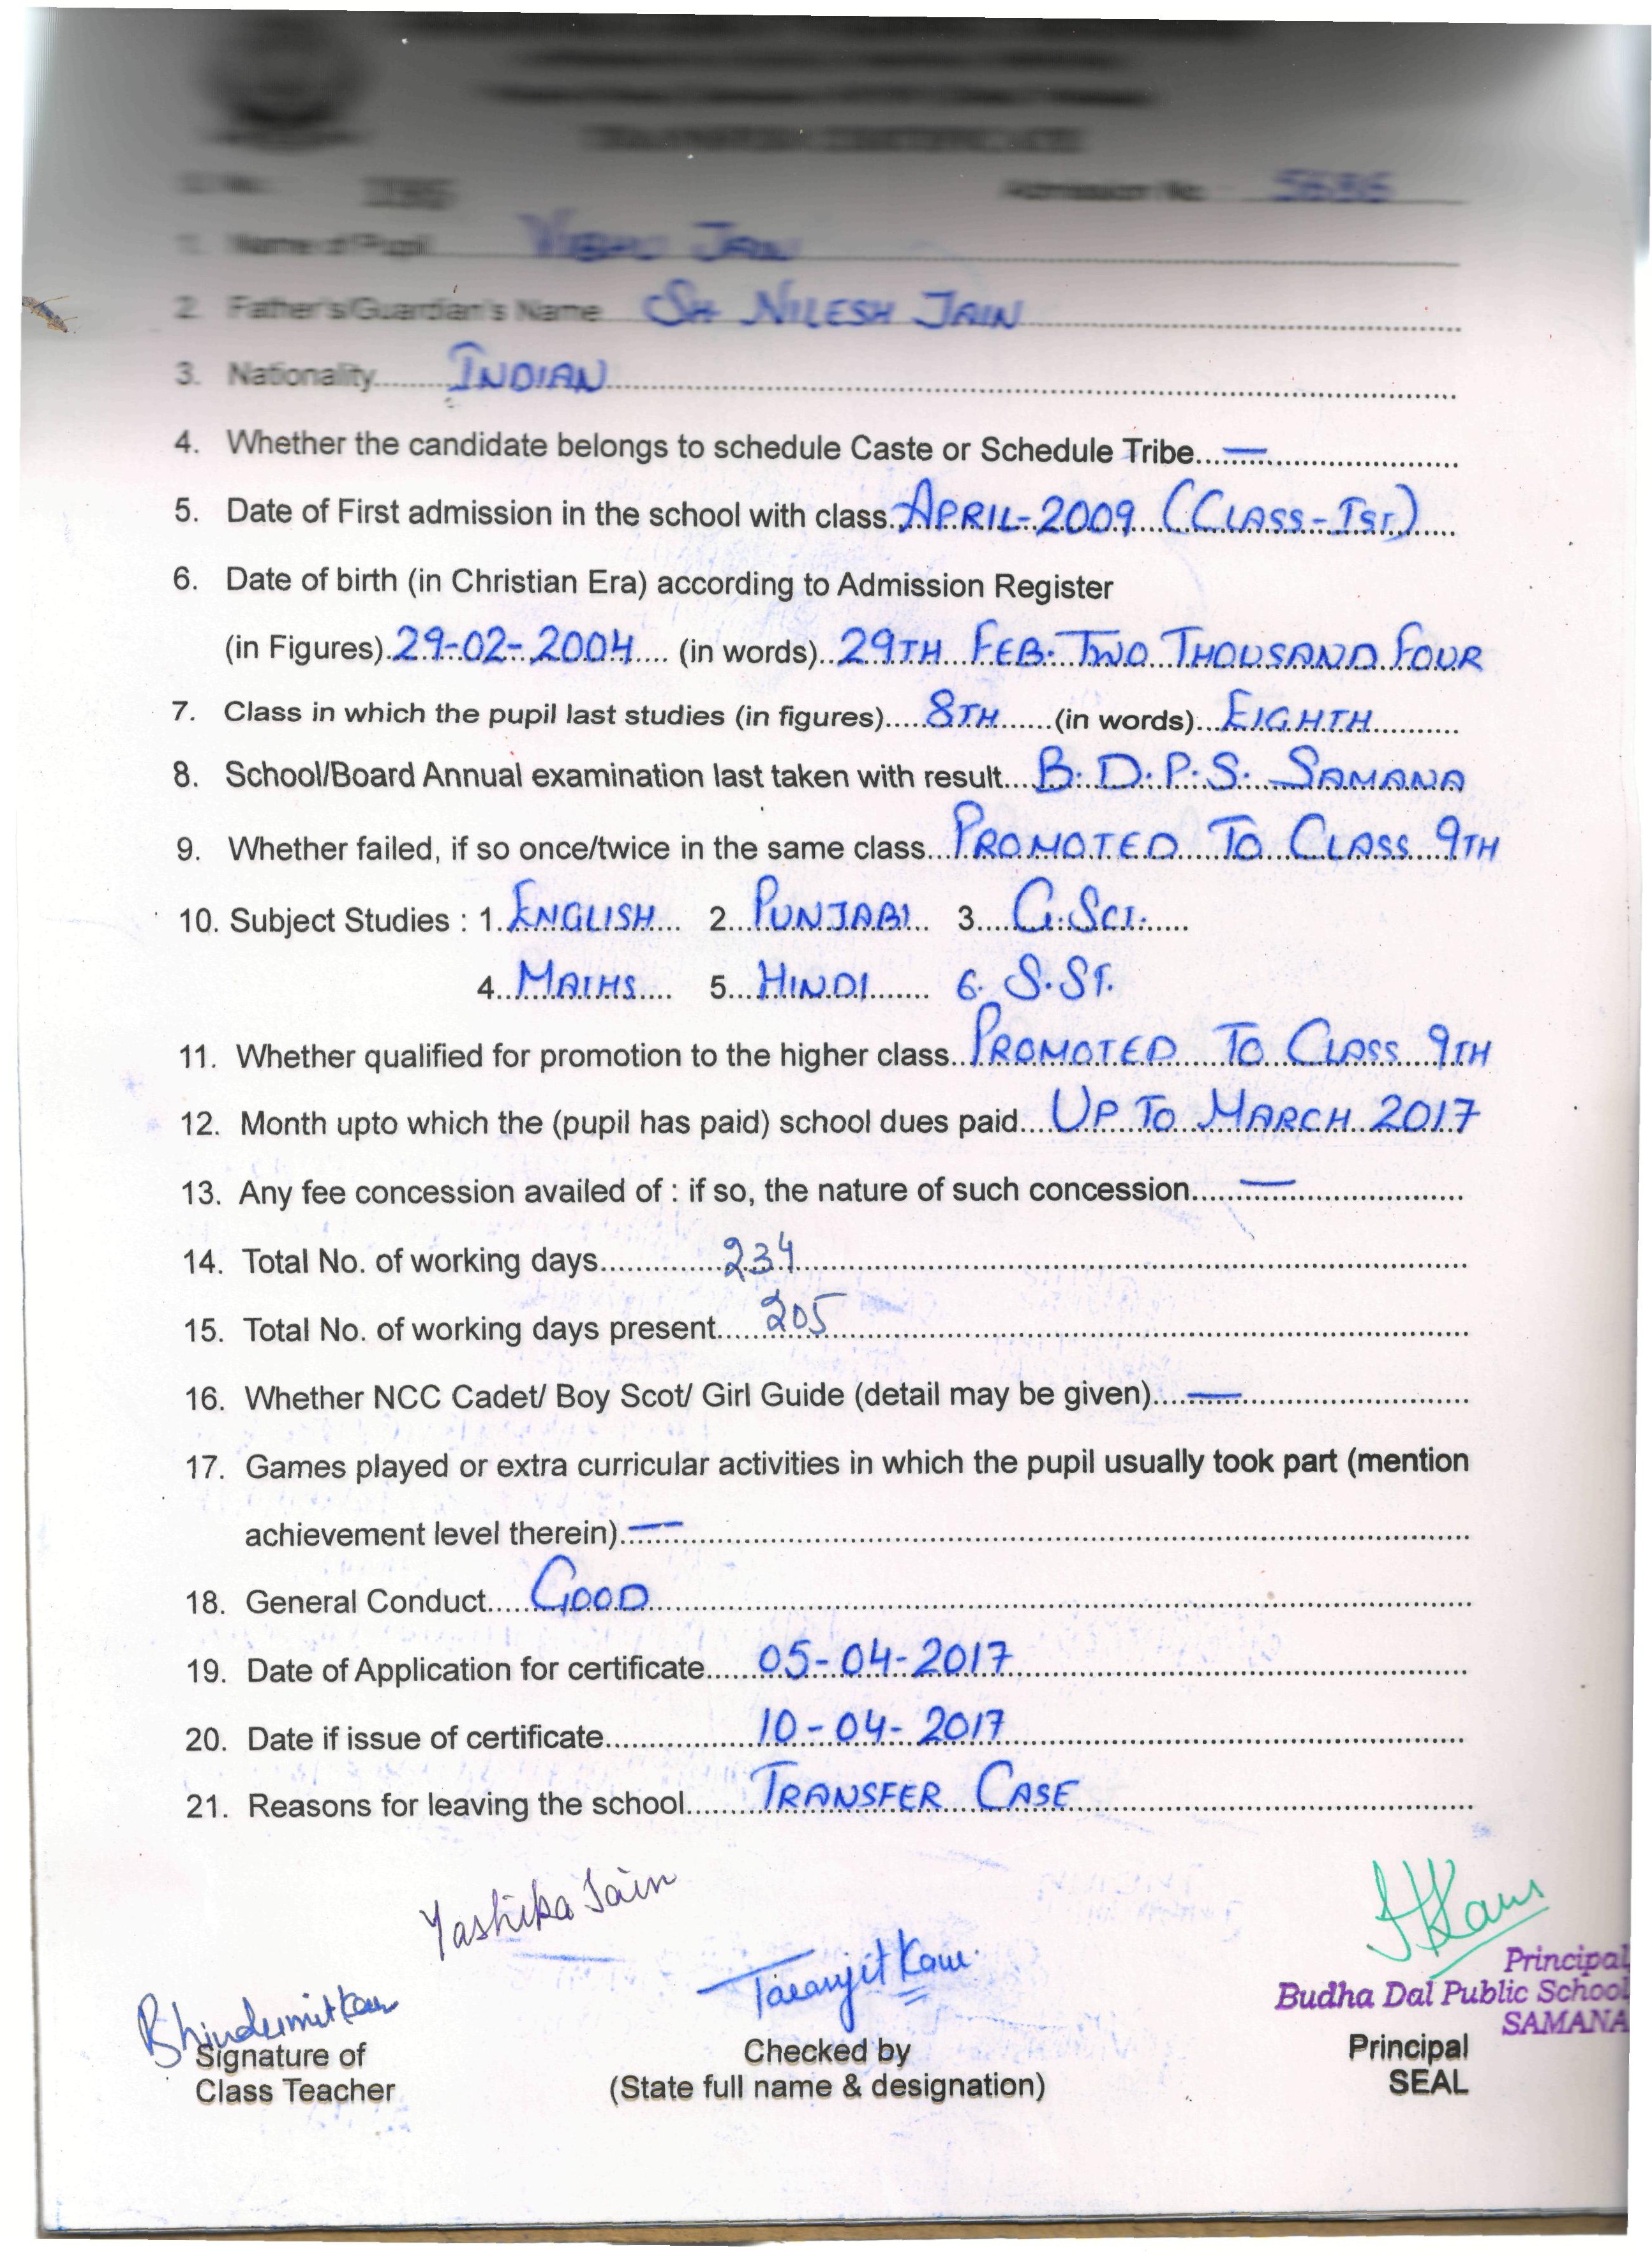 TRANSFER CERTIFICATE
Admission No. 5686
1. Name of Pupil VIBHU JAIN
2. Father's/Guardian's Name SH NILESH JAIN
3. Nationality INDIAN
4. Whether the candidate belongs to schedule Caste or Schedule Tribe —
5. Date of First admission in the school with class APRIL-2009 (CLASS-IST)
6. Date of birth (in Christian Era) according to Admission Register
(in Figures) 29-02-2004 (in words) 29TH FEB. TWO THOUSAND FOUR
7. Class in which the pupil last studies (in figures) 8TH (in words) EIGHTH
8. School/Board Annual examination last taken with result B.D.P.S. SAMANA
9. Whether failed, if so once/twice in the same class PROMOTED TO CLASS 9TH
10. Subject Studies : 1. ENGLISH 2. PUNJABI 3. G.SCI.
4. MATHS 5. HINDI 6. S.ST.
11. Whether qualified for promotion to the higher class PROMOTED TO CLASS 9TH
12. Month upto which the (pupil has paid) school dues paid UP TO MARCH 2017
13. Any fee concession availed of : if so, the nature of such concession —
14. Total No. of working days 234
15. Total No. of working days present 205
16. Whether NCC Cadet/ Boy Scot/ Girl Guide (detail may be given) —
17. Games played or extra curricular activities in which the pupil usually took part (mention
achievement level therein) —
18. General Conduct GOOD
19. Date of Application for certificate 05-04-2017
20. Date if issue of certificate 10-04-2017
21. Reasons for leaving the school TRANSFER CASE
Yashika Jain
Taranjit Kaur
Principal
Budha Dal Public School
SAMANA
Signature of
Class Teacher
Checked by
(State full name & designation)
Principal
SEAL